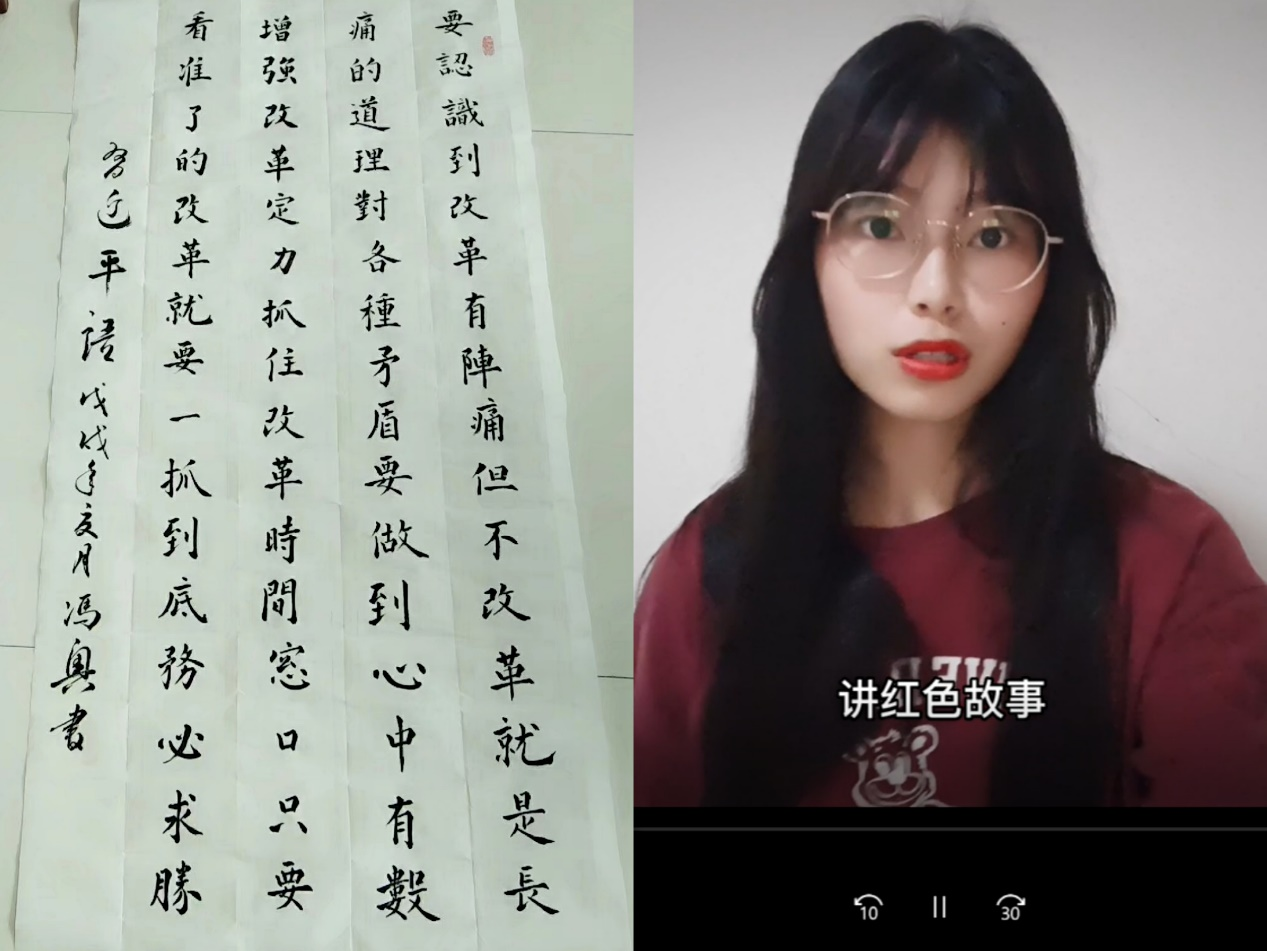 要認識到改革有陣痛但不改革就是長
痛的道理對各種矛盾要做到心中有數
增強改革定力抓住改革時間窓口只要
看准了的改革就要一抓到底務必求勝
習近平語戊戌年亥月馮奥書
讲红色故事
10 30